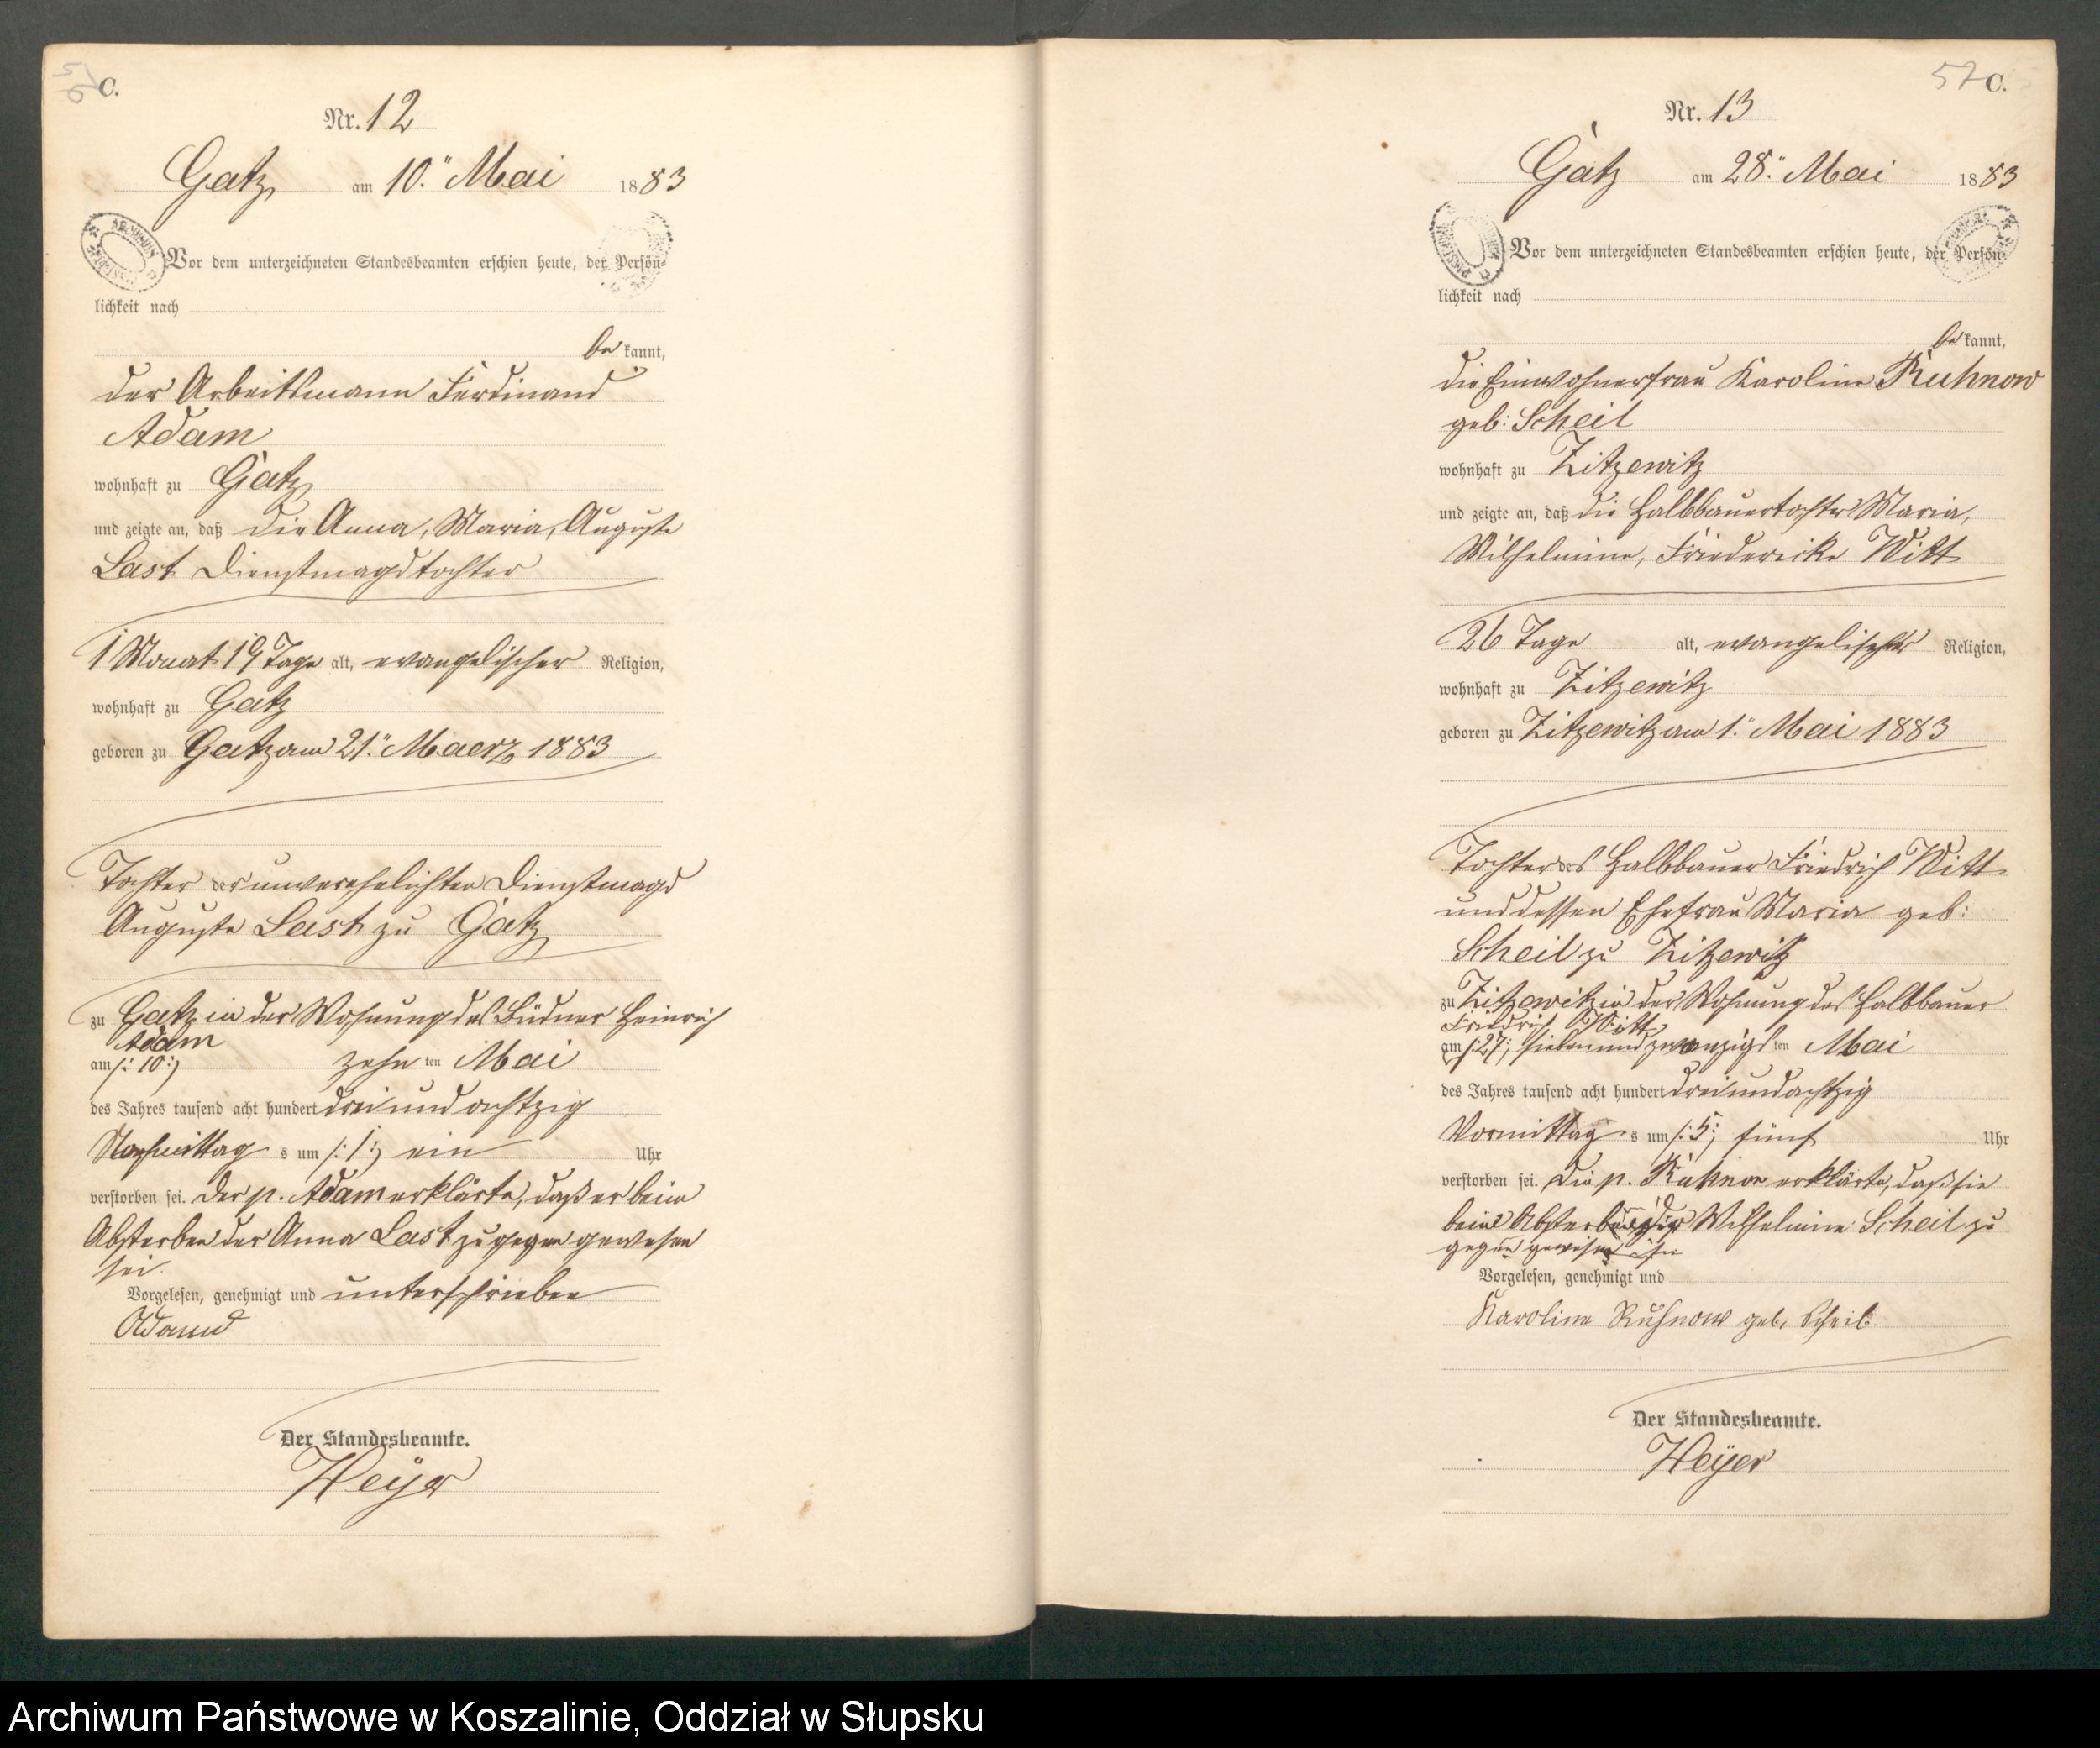 56
C.
Nr. 12
Gatz am 10." Mai 1883
Vor dem unterzeichneten Standesbeamten erschien heute, der Persön-
lichkeit nach
be kannt,
der Arbeitsmann Ferdinand
Adam
wohnhaft zu Gatz
und zeigte an, daß die Anna, Maria, Auguste
Last Dienstmagdtochter
1 Monat 19 Tage alt, evangelischer Religion,
wohnhaft zu Gatz
geboren zu Gatz am 21." Maerz 1883
Tochter der unverehelichten Dienstmagd
Auguste Last zu Gatz
zu Gatz in der Wohnung des Büdner Heinrich
Adam
am /: 10 :/ zehn ten Mai
des Jahres tausend acht hundert dreiundachtzig
Nachmittag s um /: 1 :/ ein Uhr
verstorben sei. Der p. Adam erklärte, daß er beim
Absterben der Anna Last zugegen gewesen
sei.
Vorgelesen, genehmigt und unterschrieben
Adam
Der Standesbeamte.
Heyer
57 C.
Nr. 13
Gatz am 28." Mai 1883
Vor dem unterzeichneten Standesbeamten erschien heute, der Persön-
lichkeit nach
be kannt,
die Einwohnerfrau Karoline Ruhnow
geb: Scheil
wohnhaft zu Zitzewitz
und zeigte an, daß die Halbbauertochter Maria,
Wilhelmine, Friedericke Witt
26 Tage alt, evangelischer Religion,
wohnhaft zu Zitzewitz
geboren zu Zitzewitz am 1." Mai 1883
Tochter des Halbbauer Friedrich Witt
und dessen Ehefrau Maria geb:
Scheil zu Zitzewitz
zu Zitzewitz in der Wohnung des Halbbauer
Friedrich Witt
am /: 27 :/ siebenundzwanzigs ten Mai
des Jahres tausend acht hundert dreiundachtzig
Vormittag s um /: 5 :/ fünf Uhr
verstorben sei. Die p. Ruhnow erklärte, daß sie
beim Absterben der Wilhelmine Scheil zu
gegen gewesen sei
Vorgelesen, genehmigt und
Karoline Ruhnow geb. Scheil
Der Standesbeamte.
Heyer
Archiwum Państwowe w Koszalinie, Oddział w Słupsku